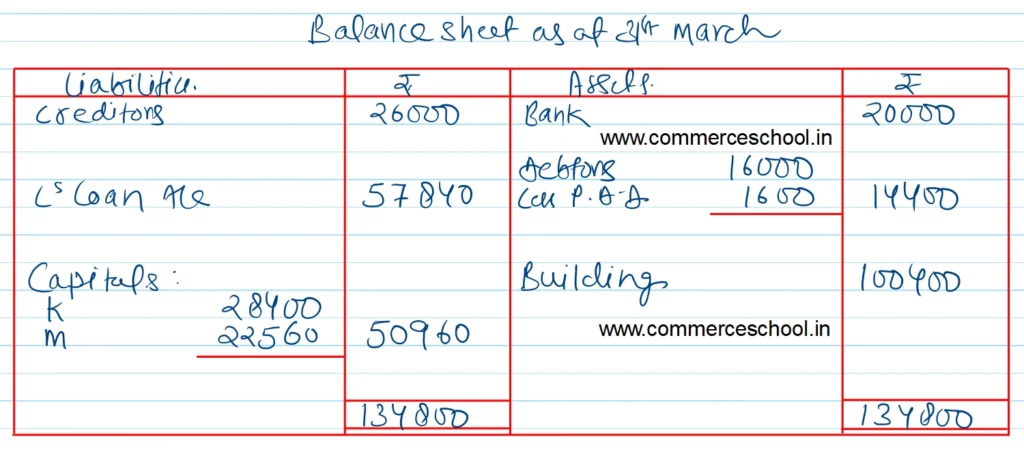 Balance sheet as at 31st March
Liabilities. ₹ Assets. ₹
Creditors 26000 Bank 20000
www.commerceschool.in
Debtors 16000
L's Loan A/c 57840 Less P.B.D. 1600 14400
Capitals: Building 100400
K 28400
M 22560 50960 www.commerceschool.in
134800 134800